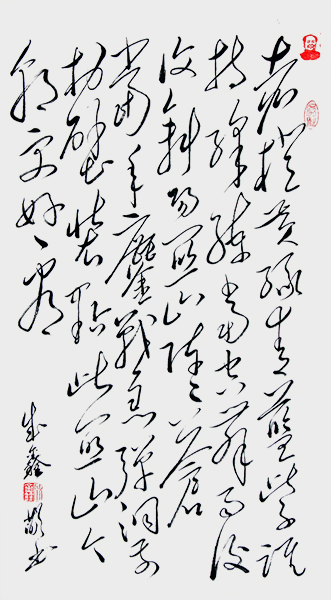 赤橙黄绿青蓝紫谁
持彩练当空舞雨后
复斜阳关山阵阵苍
当年鏖战急弹洞前
村壁装点此关山今
朝更好看
成鑫敬书